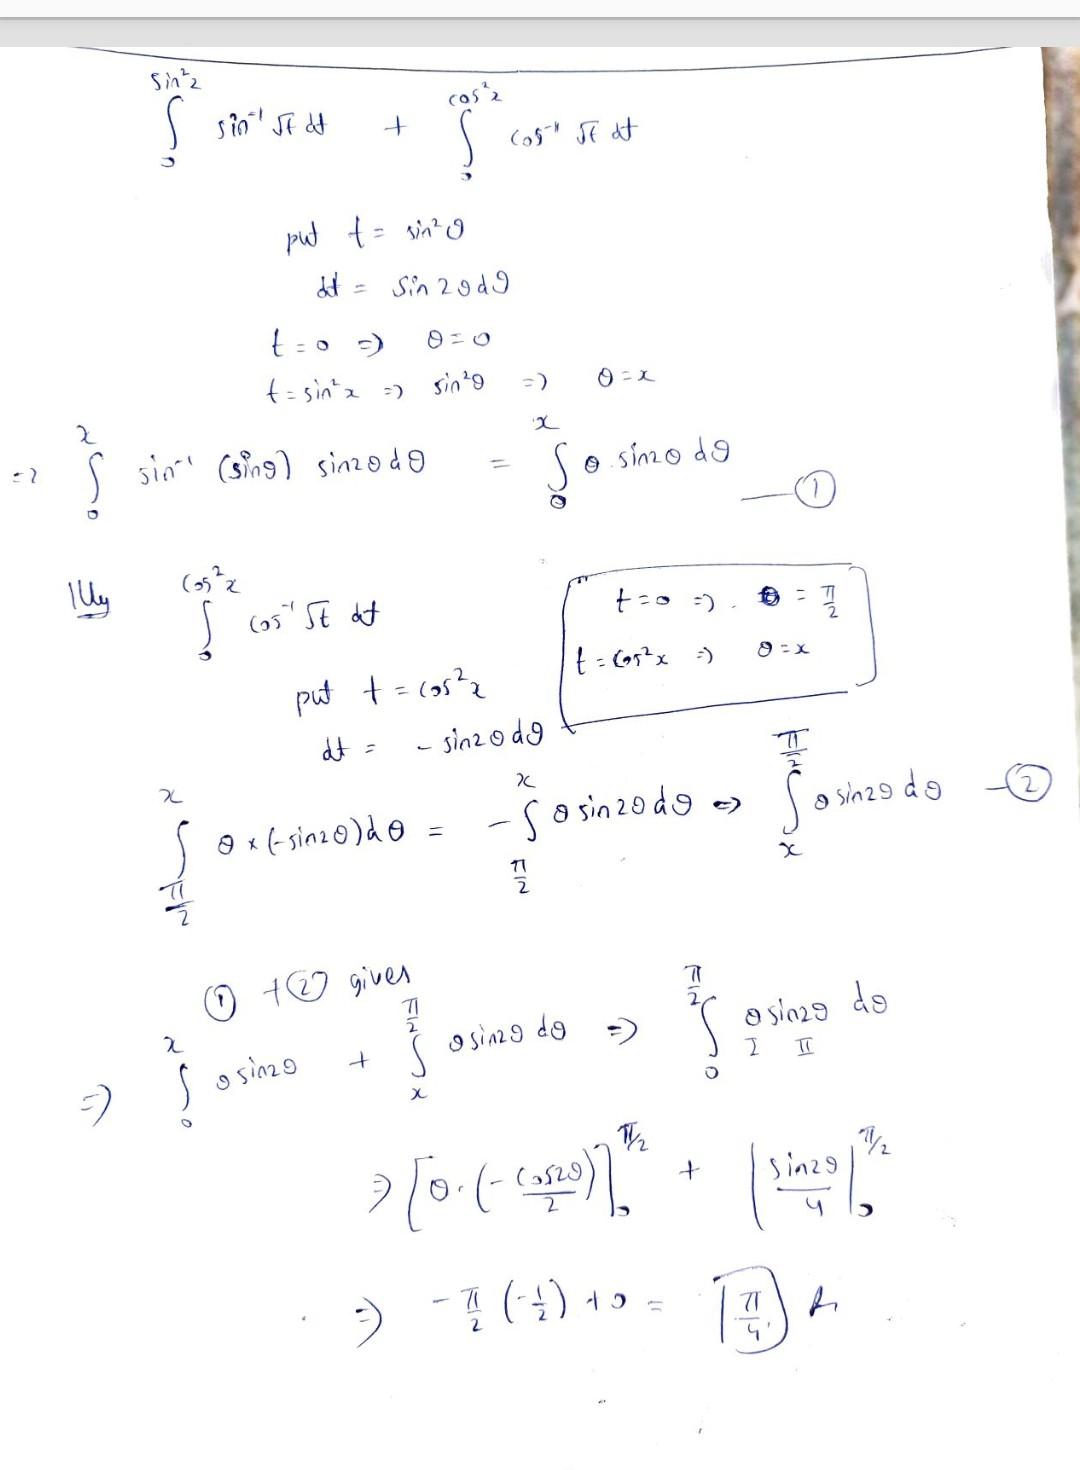 ∫₀^{sin²x} sin⁻¹ √t dt + ∫₀^{cos²x} cos⁻¹ √t dt
put t = sin²θ
dt = sin2θdθ
t = 0 => θ = 0
t = sin²x => sin²θ => θ = x
=> ∫₀^{x} sin⁻¹ (sinθ) sin2θdθ = ∫₀^{x} θ.sin2θ dθ — ①
Illly ∫₀^{cos²x} cos⁻¹ √t dt
t = 0 => θ = π/2
t = cos²x => θ = x
put t = cos²x
dt = - sin2θdθ
∫_{π/2}^{x} θ × (-sin2θ)dθ = - ∫_{π/2}^{x} θ sin2θdθ => ∫_{x}^{π/2} θ sin2θ dθ — ②
① + ② gives
=> ∫₀^{x} θ sin2θ + ∫_{x}^{π/2} θ sin2θ dθ => ∫₀^{π/2} θ sin2θ dθ
I II
=> [θ.(-cos2θ/2)]₀^{π/2} + |sin2θ/4|₀^{π/2}
=> -π/2 (-1/2) + 0 = π/4